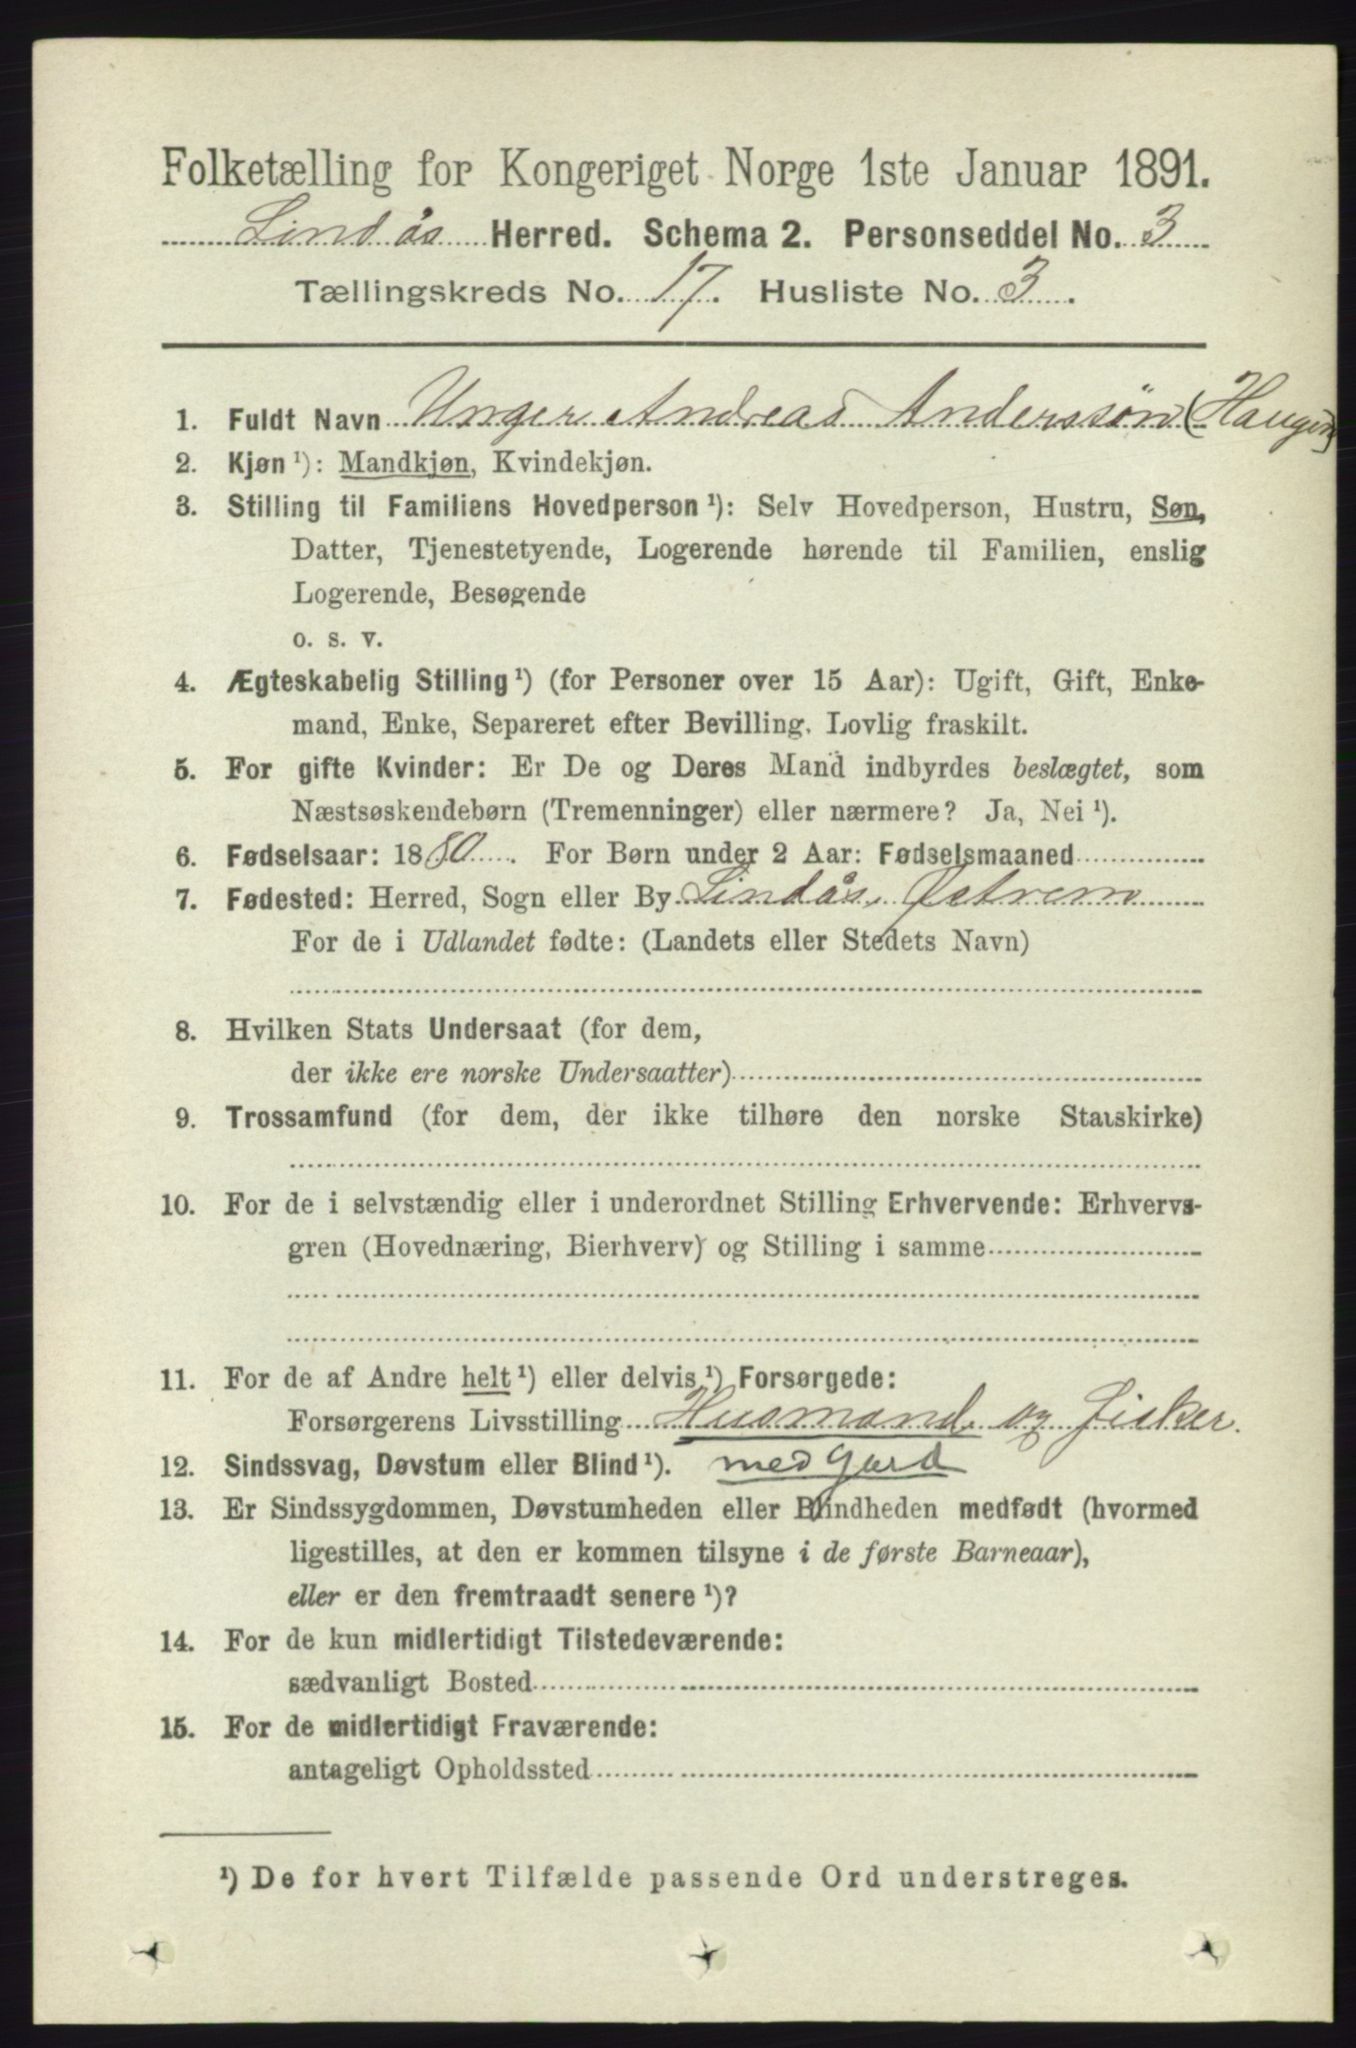 Folketælling for Kongeriget Norge 1ste Januar 1891.
Lindås Herred. Schema 2. Personseddel No. 3
Tællingskreds No. 17. Husliste No. 3.
1. Fuldt Navn Unger Andreas Anderssøn (Haugen)
2. Kjøn ¹): Mandkjøn, Kvindekjøn.
3. Stilling til Familiens Hovedperson ¹): Selv Hovedperson, Hustru, Søn,
Datter, Tjenestetyende, Logerende hørende til Familien, enslig
Logerende, Besøgende
o. s. v.
4. Ægteskabelig Stilling ¹) (for Personer over 15 Aar): Ugift, Gift, Enke-
mand, Enke, Separeret efter Bevilling. Lovlig fraskilt.
5. For gifte Kvinder: Er De og Deres Mand indbyrdes beslægtet, som
Næstsøskendebørn (Tremenninger) eller nærmere? Ja, Nei ¹).
6. Fødselsaar: 1880. For Børn under 2 Aar: Fødselsmaaned
7. Fødested: Herred, Sogn eller By Lindås, Østrem
For de i Udlandet fødte: (Landets eller Stedets Navn)
8. Hvilken Stats Undersaat (for dem,
der ikke ere norske Undersaatter)
9. Trossamfund (for dem, der ikke tilhøre den norske Statskirke)
10. For de i selvstændig eller i underordnet Stilling Erhvervende: Erhvervs-
gren (Hovednæring, Bierhverv) og Stilling i samme
11. For de af Andre helt ¹) eller delvis ¹) Forsørgede:
Forsørgerens Livsstilling Husmand og Fisker.
12. Sindssvag, Døvstum eller Blind ¹). med Jord
13. Er Sindssygdommen, Døvstumheden eller Blindheden medfødt (hvormed
ligestilles, at den er kommen tilsyne i de første Barneaar),
eller er den fremtraadt senere ¹)?
14. For de kun midlertidigt Tilstedeværende:
sædvanligt Bosted
15. For de midlertidigt Fraværende:
antageligt Opholdssted
¹) De for hvert Tilfælde passende Ord understreges.